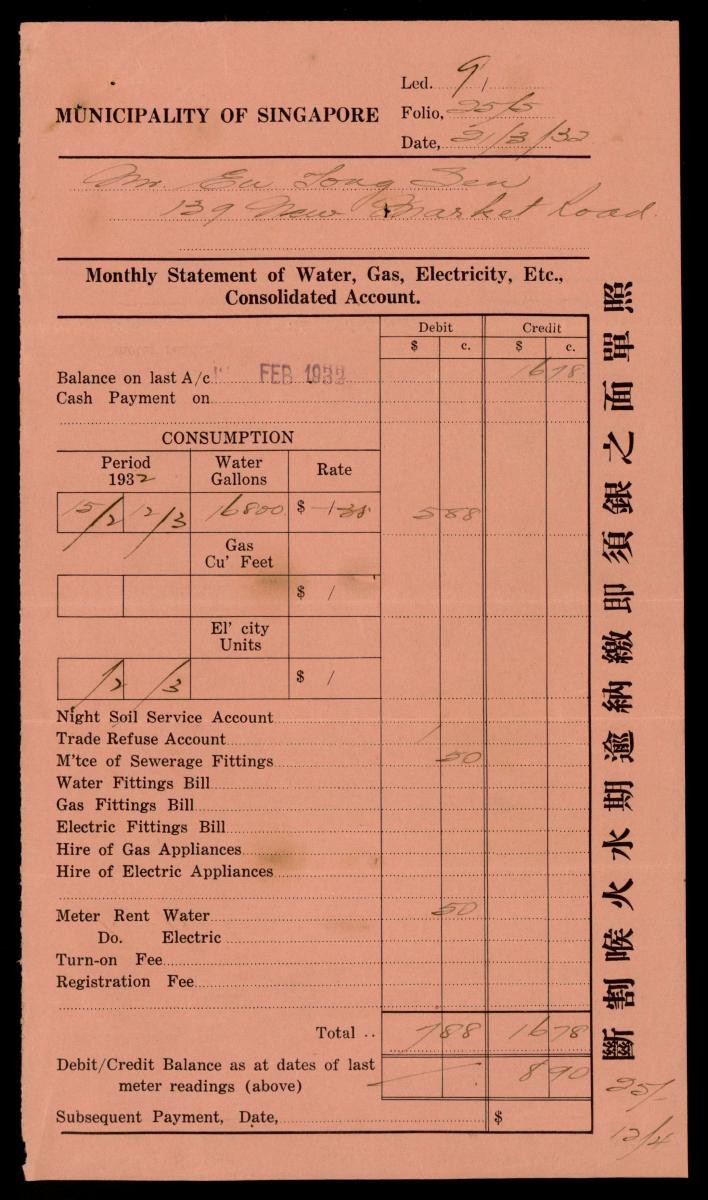 Led. 9/
MUNICIPALITY OF SINGAPORE
Folio, 25/5
Date, 21/3/32
Mr. Eu Tong Sen
139 New Market Road.
Monthly Statement of Water, Gas, Electricity, Etc.,
Consolidated Account.
Debit Credit
$ c. $ c.
Balance on last A/c FEB 1932 16 78
Cash Payment on
CONSUMPTION
Period 1932 Water Gallons Rate
15/2 12/3 16800 $ 5 88
Gas
Cu' Feet
$ /
El' city
Units
1/2 /3 $ /
Night Soil Service Account
Trade Refuse Account 1
M'tce of Sewerage Fittings 50
Water Fittings Bill
Gas Fittings Bill
Electric Fittings Bill
Hire of Gas Appliances
Hire of Electric Appliances
Meter Rent Water 50
Do. Electric
Turn-on Fee
Registration Fee
Total .. 7 88 16 78
Debit/Credit Balance as at dates of last
meter readings (above) 8 90
Subsequent Payment, Date, $
照單面之銀須即繳納逾期水火喉割斷
25/-
12/4